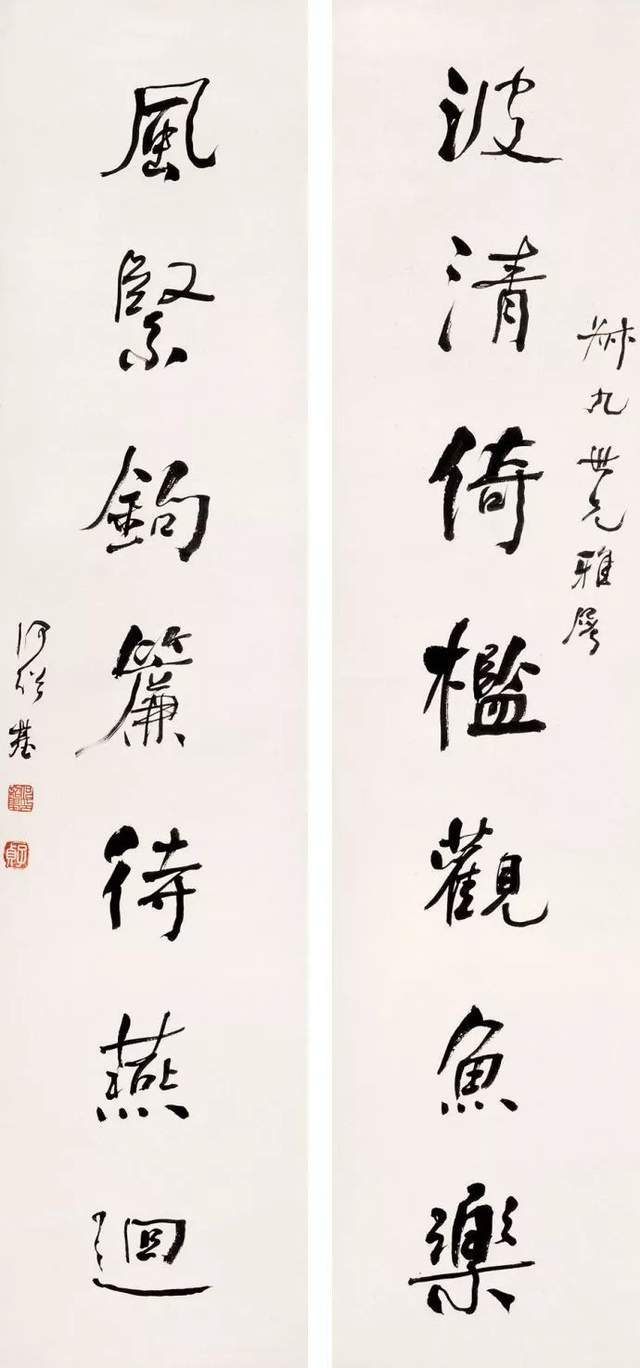 波清倚檻觀魚樂
叔九世兄雅屬
風緊鉤簾待燕迴
何紹基